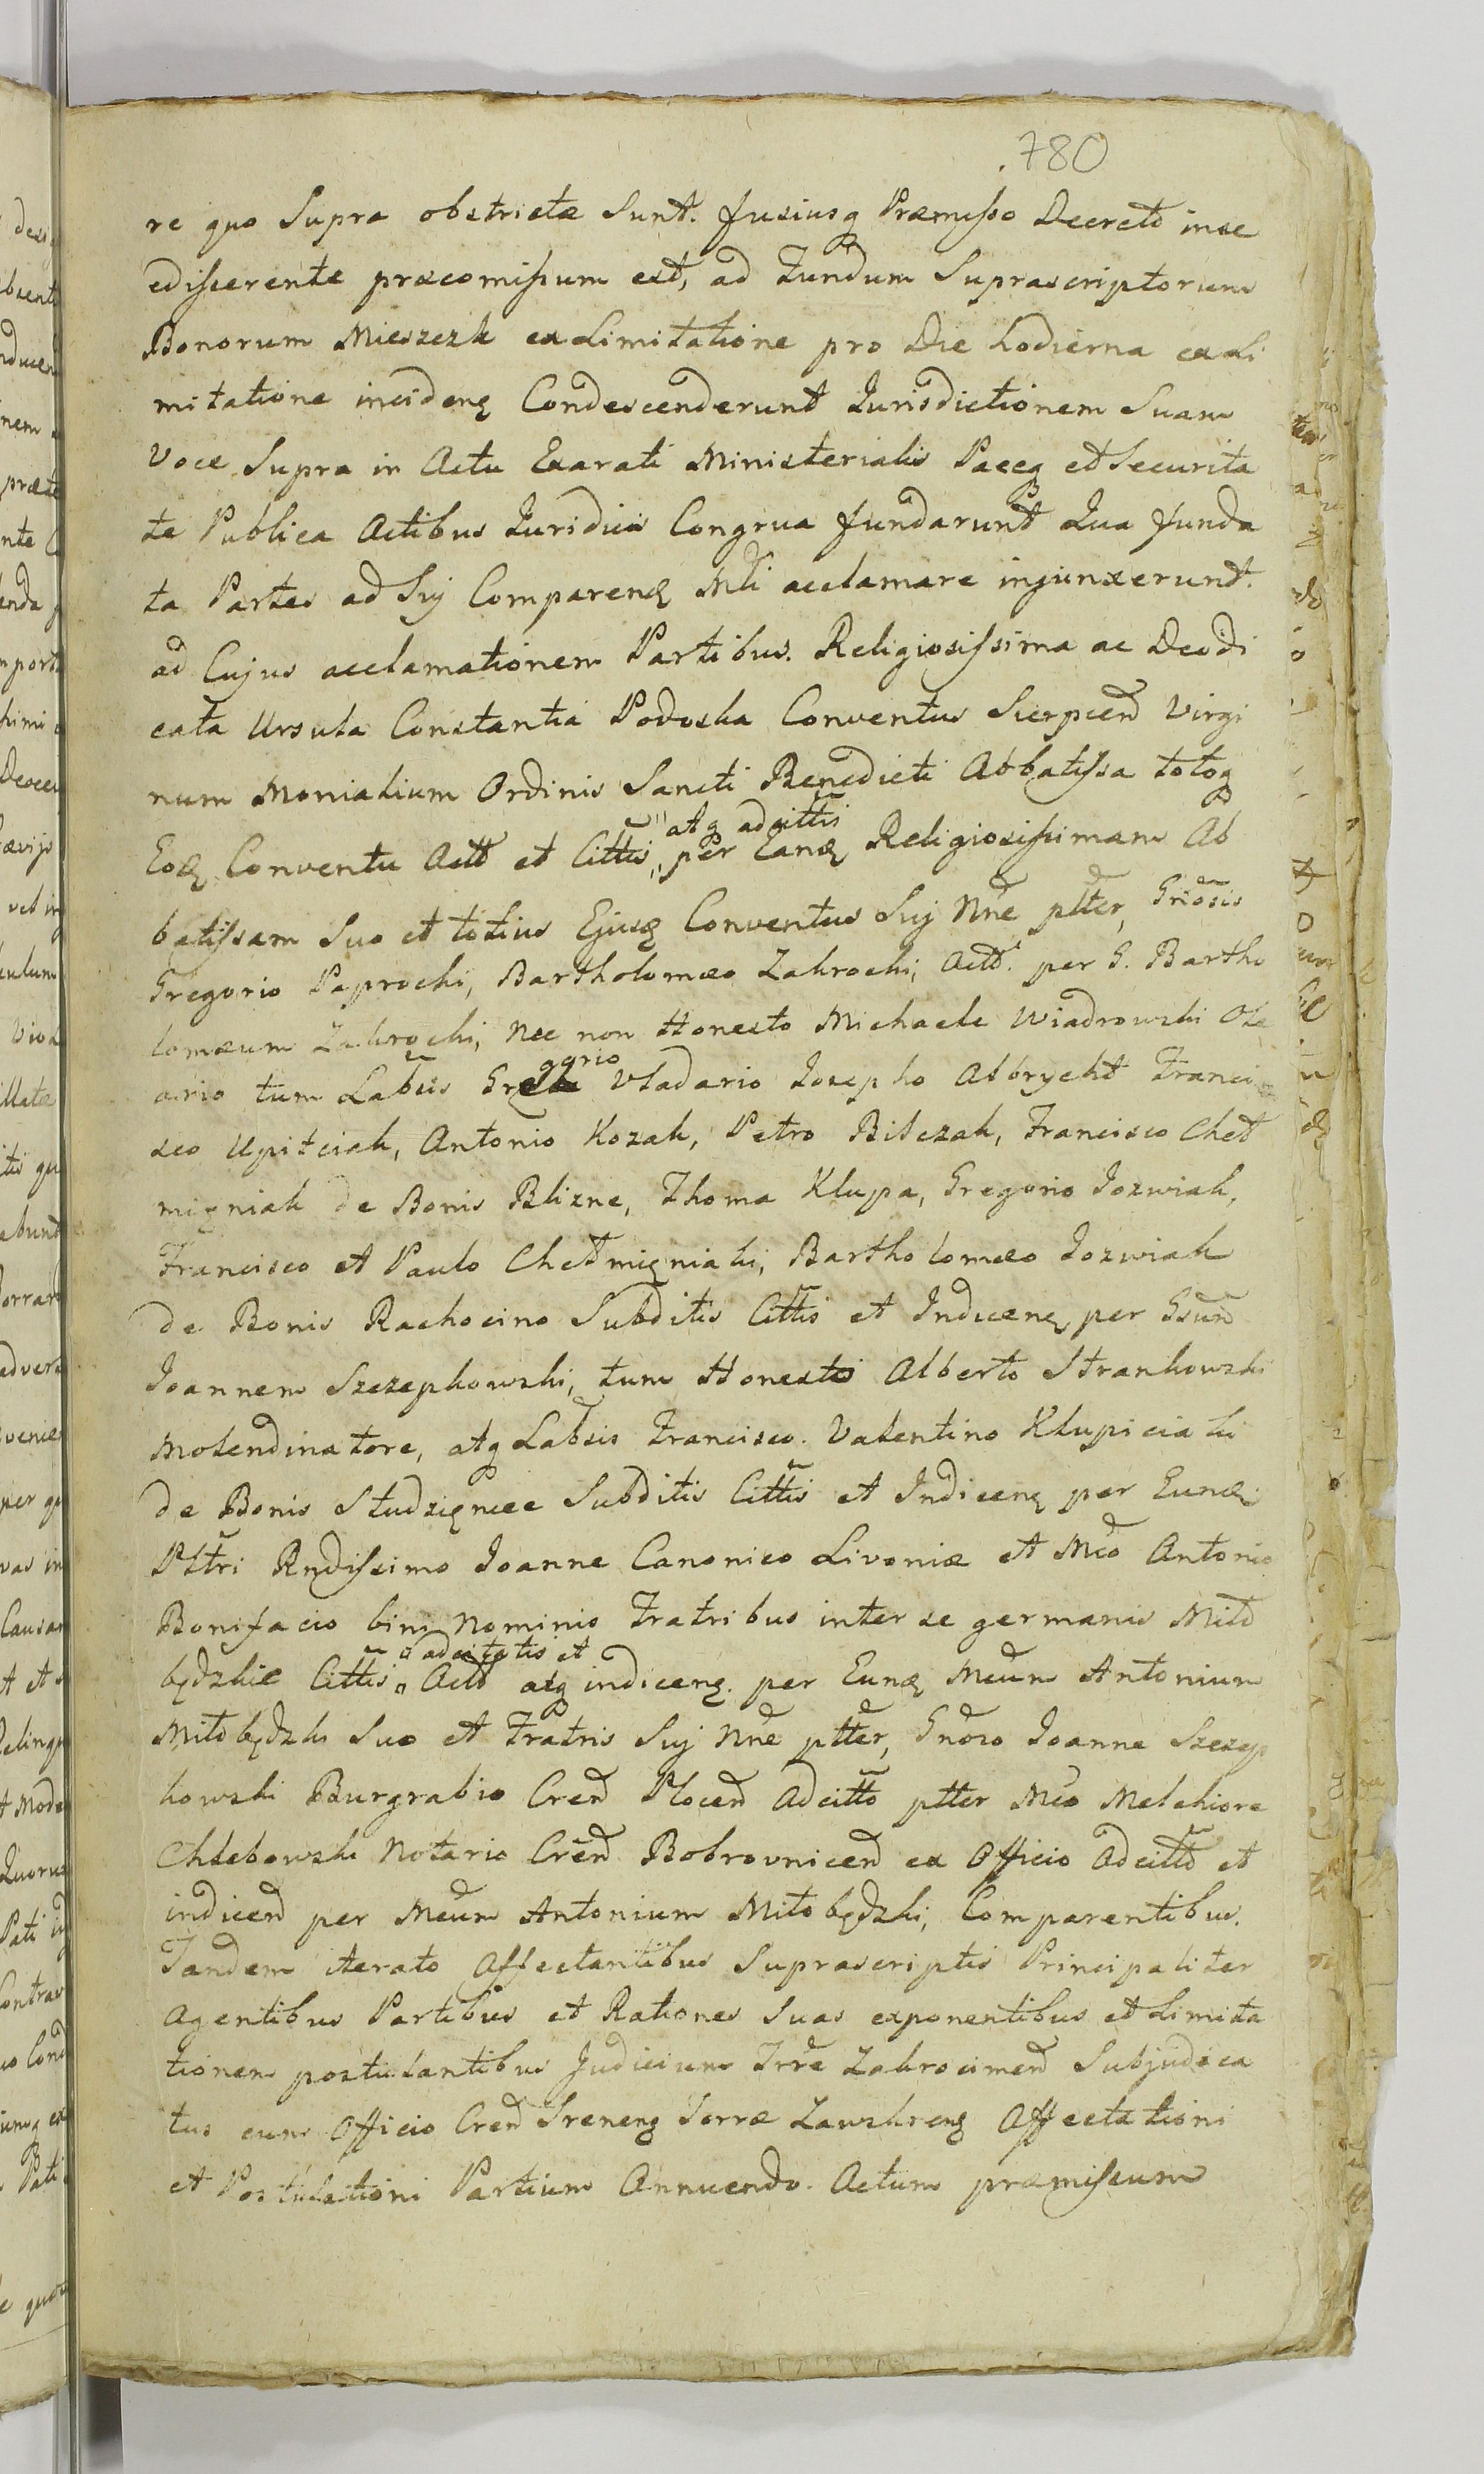 780
re quo Supra obstrictæ Sunt. fusiusq Præmisso Decreto in se
edisserente præcomissum est, ad Fundum Suprascriptorum
Bonorum Mieszczk ex Limitatione pro Die hodierna ex Li
mitatione incidenq Condescenderunt Iurisdictionem Suam
Voce Supra in Actu Exarati Ministerialis Paceq et Securita
te Publica Actibus Iuridicis Congrua fundarunt Qua funda
ta Partes ad Suj Comparenq Mli acclamare injunxerunt.
ad Cujus acclamationem Partibus. Religiosissima ac Deodi
cata Ursula Constantia Podoska Conventus Sierpcen Virgi
num Monialium Ordinis Sancti Benedicti Abbatissa totoq
atq adcittis
Eoq Conventu Actt et Cittis, per Eanq Religiosissimam Ab
batissam Suo et totius Ejusq Conventus Suj Nne ptter, Gnosis
Gregorio Paprocki, Bartholomæo Zakrocki, Actt. per G. Bartho
lomæum Zakrocki, Nec non Honesto Michaele Wiadrowski Ole
gorio
ario tum Labsis Gre Vladario Josepho Albrycht Franci
sco Upitciak, Antonio Kozak, Petro Bilczak, Francisco Chet
migniak de Bonis Blizne, Thoma Klupa, Gregorio Jozwiak,
Francisco et Paulo Chetmigniaki, Bartholomæo Jozwiak
de Bonis Rachocino Subditis Cittis et Indicenq per Gsum
Joannem Szczepkowski, tum Honesto Alberto Strankowski
Molendinatore, atq Labsis Francisco. Valentino Klupiciaki
de Bonis Studzieniec Subditis Cittis et Indicenq per Eunq
Plstri Rndissimo Joanne Canonico Livoniæ et Mco Antonio
Bonifacio bini Nominis Fratribus inter se germanis Mito
adcitatis et
będzkie Cittis Actt atq indicenq. per Eunq Mcum Antonium
Mitobędzki Suo et Fratris Suj Nne ptter, Gnoso Joanne Szczep
kowski Burgrabio Cren Plocen Adcitto ptter Mco Melchiore
Chlebowski Notario Cren Bobrovnicen ex Officio Adcitto et
indicen per Mcum Antonium Mitobędzki, Comparentibus.
Tandem iterato Affectantibus Suprascriptis Principaliter
Agentibus Partibus et Rationes Suas exponentibus et Limita
tionem postulantibus Judicium Trre Zakrocimen Subjudica
tus cum Officio Cren Srenenq Terræ Zawskrenq Affectationi
et Postulationi Partium Annuendo. Actum præmissum